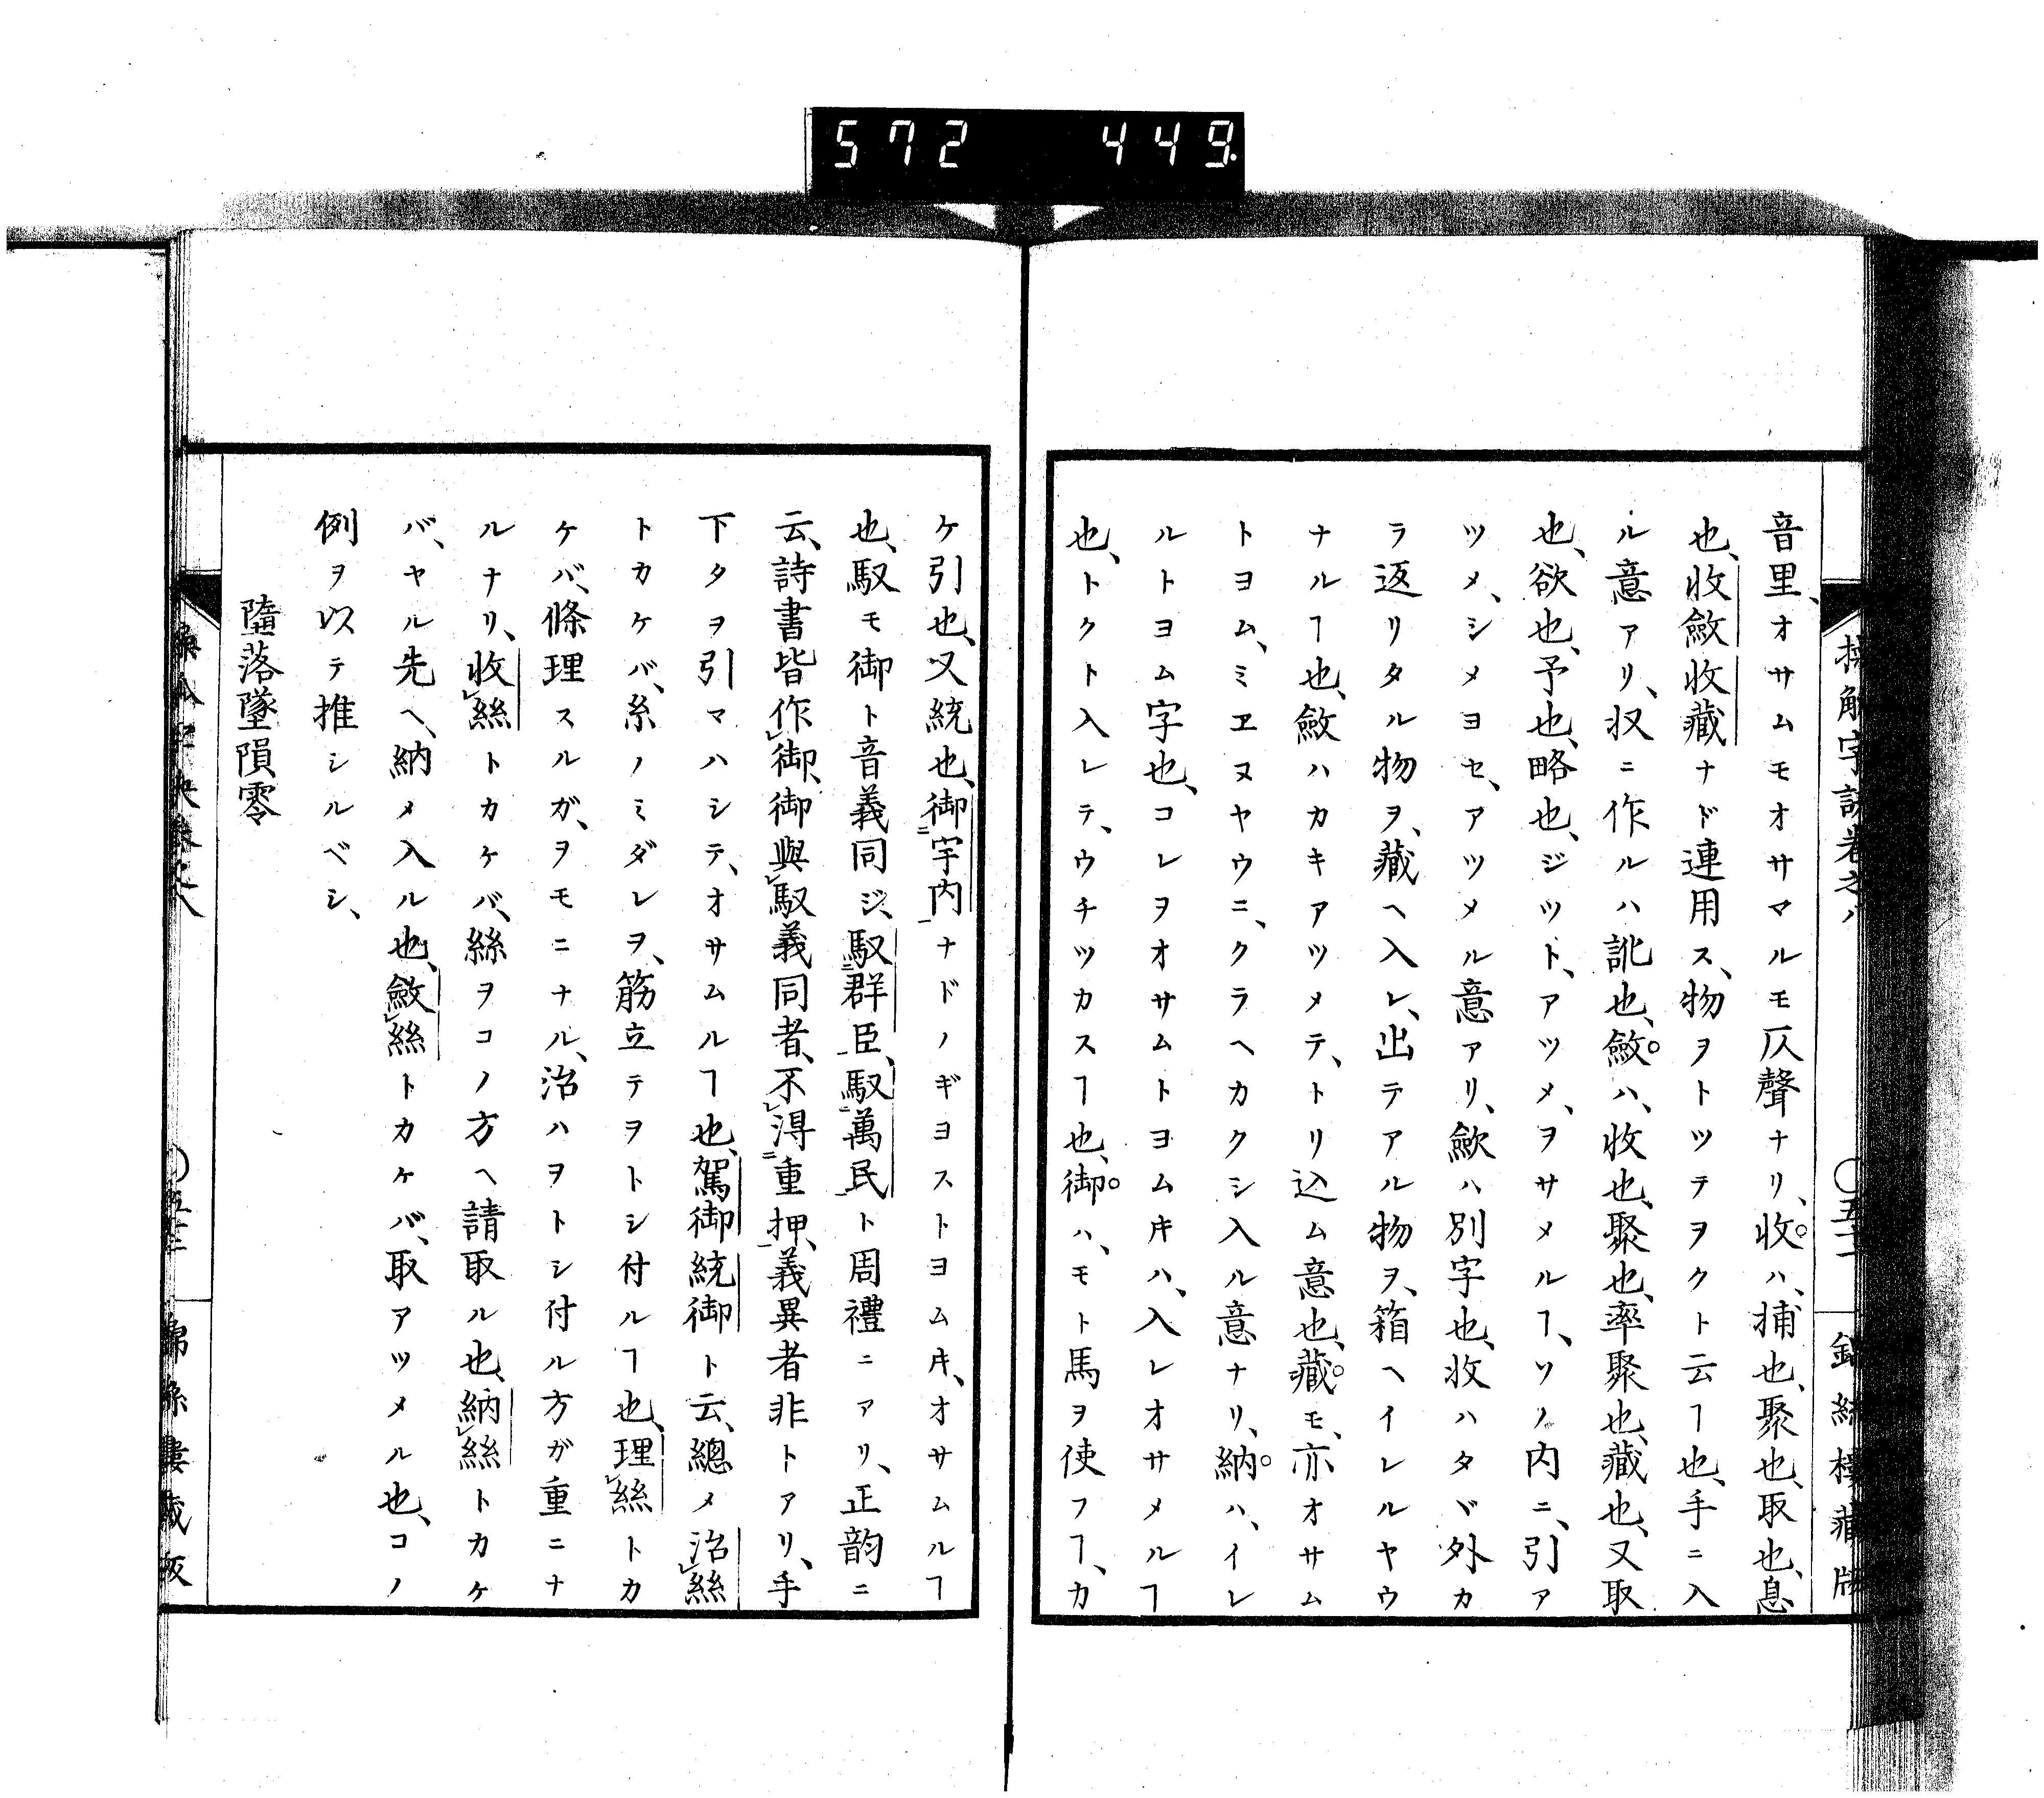 572 449
音里、オサムモオサマルモ仄聲ナリ、收ハ、捕也、聚也、取也、息
也、收斂收藏ナド連用ス、物ヲトツテヲクト云ヿ也、手ニ入
ル意アリ、収ニ作ルハ訛也、斂ハ、收也、聚也、率聚也、藏也、又取
也、欲也、予也、略也、ジツト、アツメ、ヲサメルヿ、ソノ内ニ、引ア
ツメ、シメヨセ、アツメル意アリ、歛ハ別字也、收ハタヾ外カ
ラ返リタル物ヲ、藏ヘ入レ、出テアル物ヲ、箱ヘイレルヤウ
ナルヿ也、斂ハカキアツメテ、トリ込ム意也、藏モ、亦オサム
トヨム、ミヱヌヤウニ、クラヘカクシ入ル意ナリ、納ハ、イレ
ルトヨム字也、コレヲオサムトヨムキハ、入レオサメルヿ
也、トクト入レテ、ウチツカスヿ也、御ハ、モト馬ヲ使フヿ、カ
ケ引也、又統也、御宇内ナドノギヨストヨムキ、オサムルヿ
也、馭モ御ト音義同ジ、馭群臣、馭萬民ト周禮ニアリ、正韵ニ
云、詩書皆作御、御與馭義同者、不得重押、義異者非トアリ、手
下タヲ引マハシテ、オサムルヿ也、駕御統御ト云、總メ治絲
トカケバ、糸ノミダレヲ、筋立テヲトシ付ルヿ也、理絲トカ
ケバ、條理スルガ、ヲモニナル、治ハヲトシ付ル方ガ重ニナ
ルナリ、收絲トカケバ、絲ヲコノ方ヘ請取ル也、納絲トカケ
バ、ヤル先ヘ、納メ入ル也、斂絲トカケバ、取アツメル也、コノ
例ヲ以テ推シルベシ、
墮落墜隕零